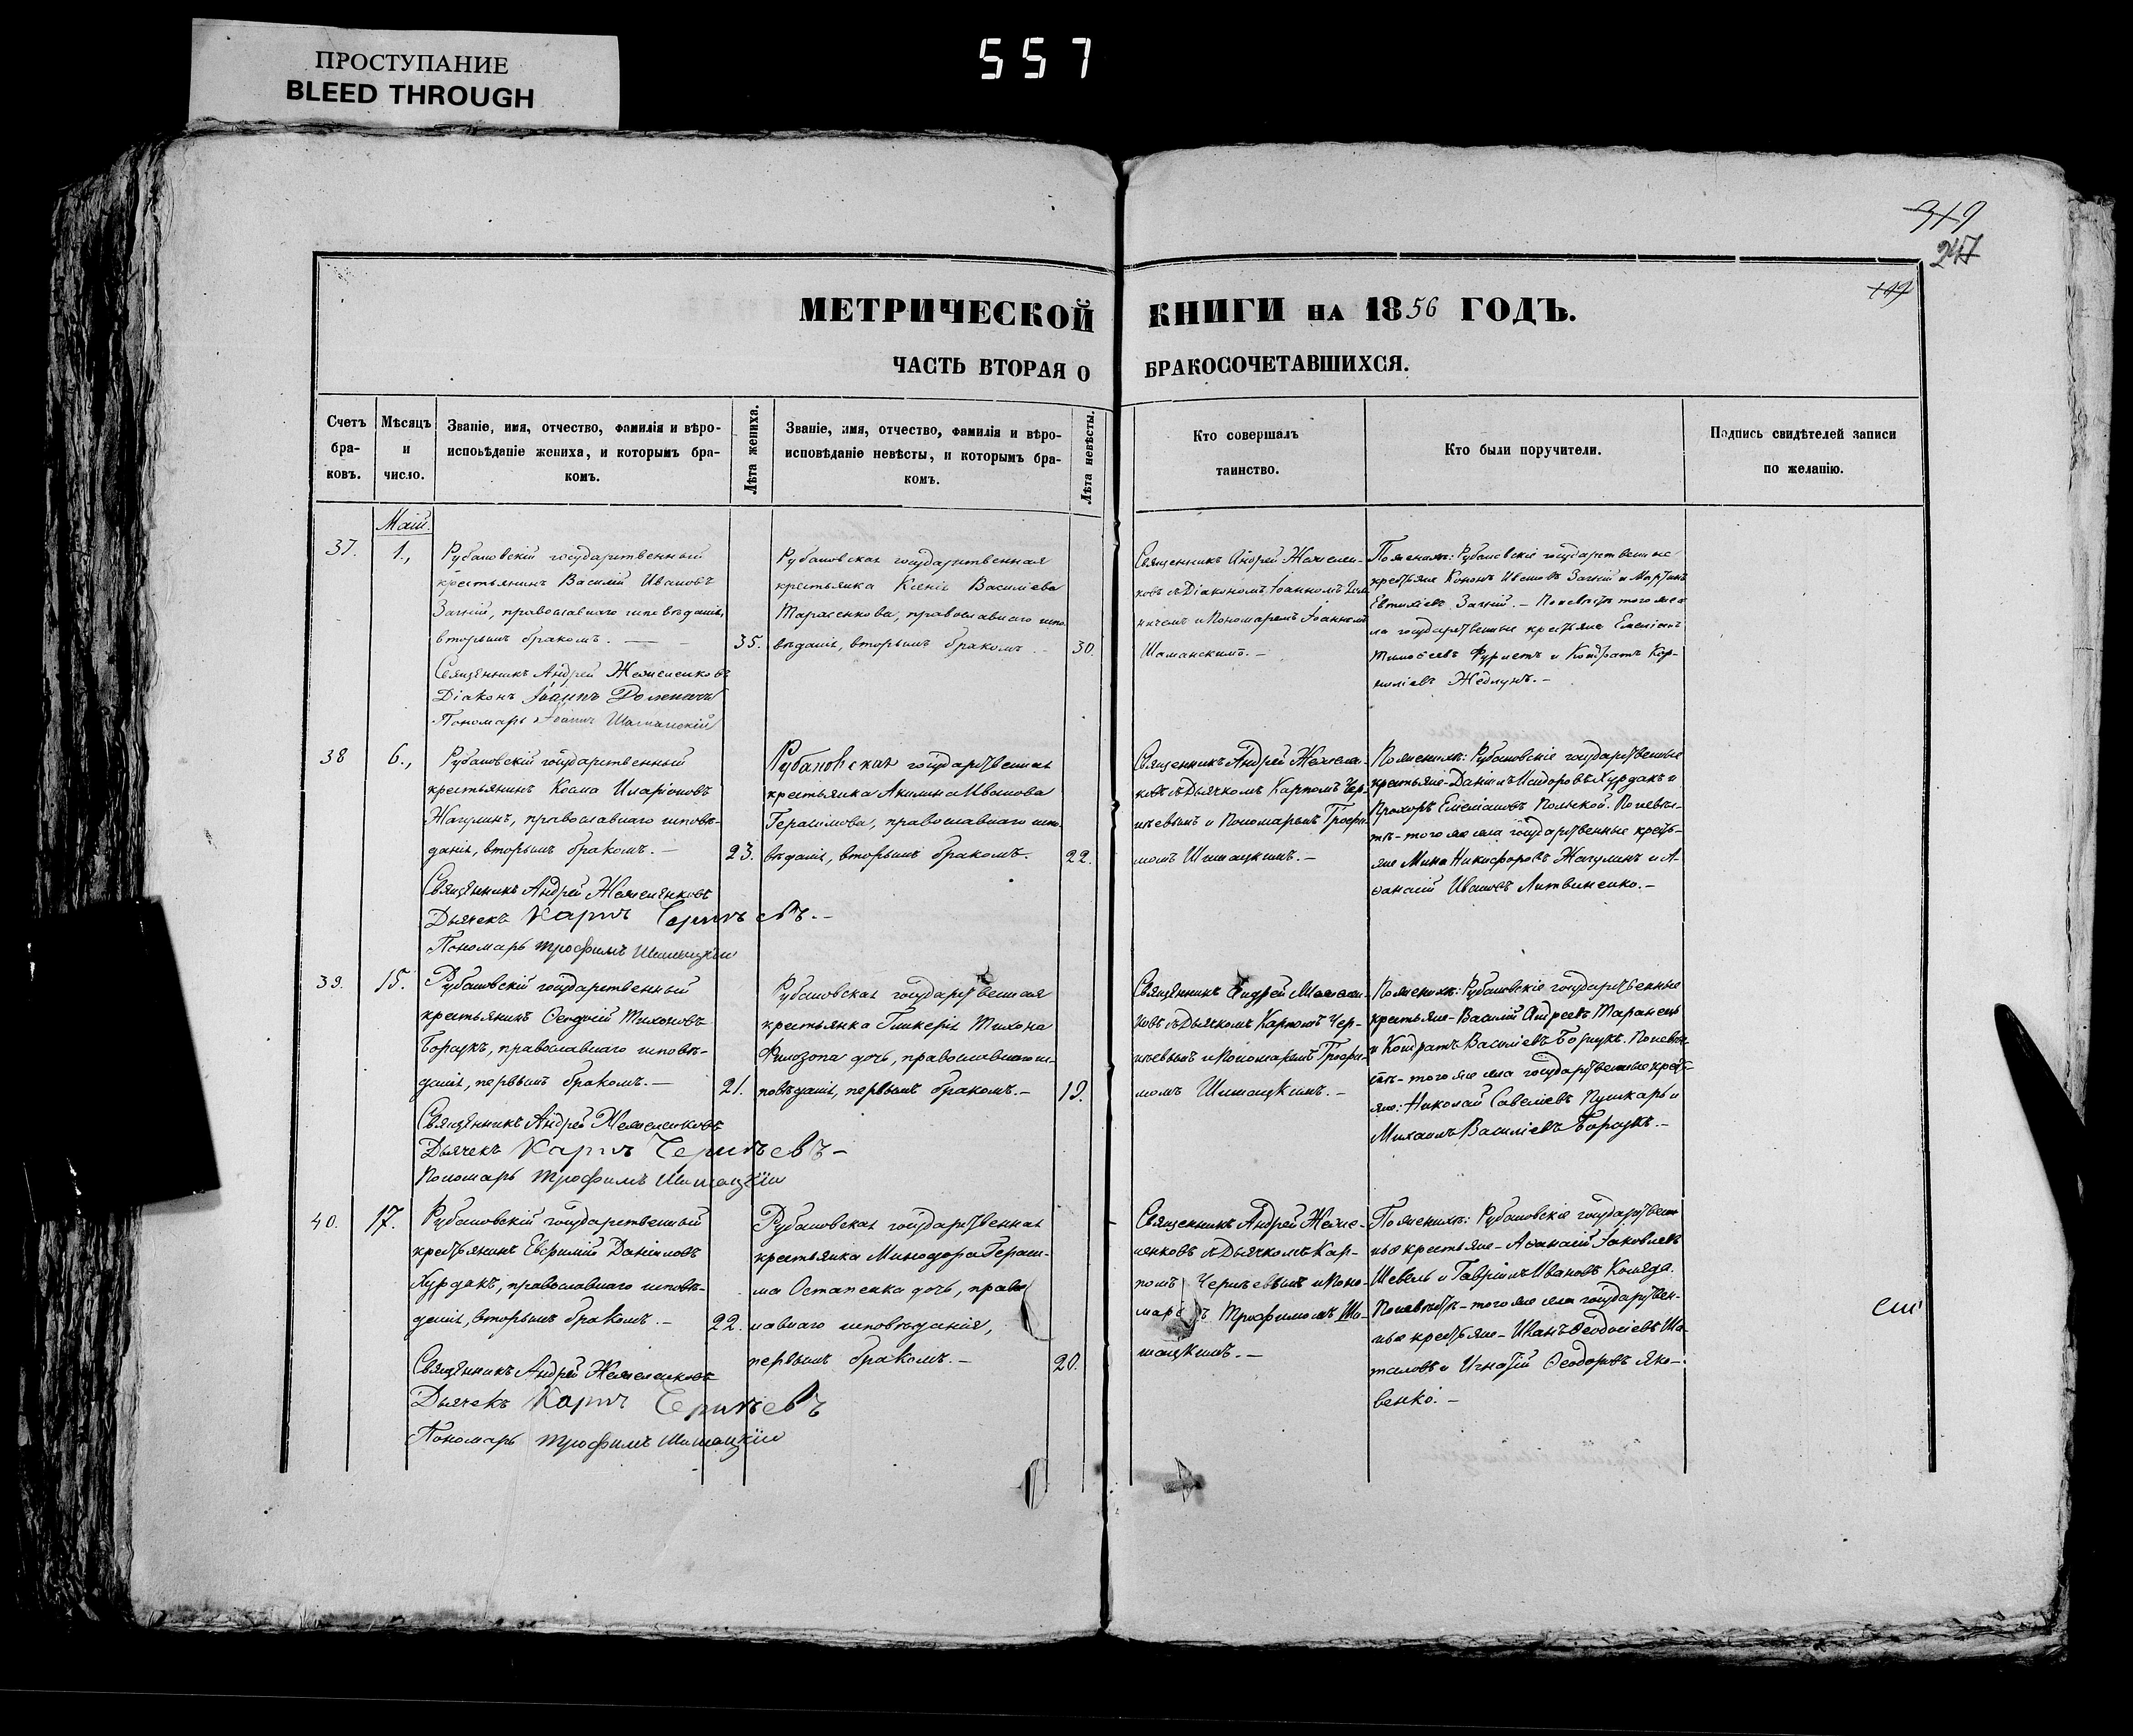 ПРОСТУПАНИЕ
BLEED THROUGH
557
319
247
МЕТРИЧЕСКОЙ КНИГИ НА 1856 ГОДЪ.
ЧАСТЬ ВТОРАЯ О БРАКОСОЧЕТАВШИХСЯ.
Счетъ бра-ковъ.
Мѣсяцъ и число.
Званіе, имя, отчество, фамилія и вѣро-
исповѣданіе жениха, и которымъ бра-
комъ.
Лѣта жениха.
Званіе, имя, отчество, фамилія и вѣро-
исповѣданіе невѣсты, и которымъ бра-
комъ.
Лѣта невѣсты.
Кто совершалъ
таинство.
Кто были поручители.
Подпись свидѣтелей записи
по желанію.
Маій.
37.
1.,
Рубановскій государственный
крестьянинъ Василій Ивановъ
Загній, православнаго исповѣданія,
вторымъ бракомъ. —
35.
Священникъ Андрей Жемеленковъ
Діаконъ Іоаннъ
Пономарь Іоаннъ Шаманскій
Рубановская государственная
крестьянка Ксенія Василіева
Тарасенкова, православнаго испо-
вѣданія, вторымъ бракомъ. —
30.
Священникъ Андрей Жемелен-
ковъ съ Діакономъ Іоанномъ
и Пономаремъ Іоанномъ
Шаманскимъ. —
По женихѣ: Рубановскіе государственные
крестьяне Кононъ Ивановъ Загній и Мартинъ
Евтихіевъ Загній. — По невѣстѣ того же се-
ла государственные крестьяне Емеліанъ
Тимоѳеевъ и Кондратъ Кор-
ниліевъ —
38
6.,
Рубановскій государственный
крестьянинъ Косма Иларіоновъ
Жагулинъ, православнаго исповѣ-
данія, вторымъ бракомъ. —
23.
Священникъ Андрей Жемеленковъ
Дьячекъ Карпъ Чернѣевъ. —
Пономарь Трофимъ Шишацкій
Рубановская государственная
крестьянка Акилина Иванова
Герасимова, православнаго испо-
вѣданія, вторымъ бракомъ.
22.
Священникъ Андрей Жемелен-
ковъ съ Дьячкомъ Карпомъ Чер-
нѣевымъ и Пономаремъ Трофи-
момъ Шишацкимъ. —
По женихѣ: Рубановскіе государственные
крестьяне — Даніилъ Исидоровъ Хурдакъ и
Прохоръ Емеліановъ Польской. По невѣс-
тѣ — того же села государственные кресть-
яне Мина Никифоровъ Жагулинъ и А-
ѳанасій Ивановъ Литвиненко. —
39.
15.
Рубановскій государственный
крестьянинъ Ѳеодосій Тихоновъ
Борщукъ, православнаго исповѣ-
данія, первымъ бракомъ. —
21.
Священникъ Андрей Жемеленковъ
Дьячекъ Карпъ Чернѣевъ —
Пономарь Трофимъ Шишацкій
Рубановская государственная
крестьянка Гликерія Тихона
Филозопа дочь, православнаго ис-
повѣданія, первымъ бракомъ. —
19.
Священникъ Андрей Жемелен-
ковъ съ Дьячкомъ Карпомъ Чер-
нѣевымъ и Пономаремъ Трофи-
момъ Шишацкимъ. —
По женихѣ: Рубановскіе государственные
крестьяне — Василій Андреевъ Таранецъ
и Кондратъ Василіевъ Борщукъ. По невѣс-
тѣ — того же села государственные кресть-
яне: Николай Савеліевъ Пушкарь и
Михаилъ Василіевъ Борщукъ. —
40.
17.
Рубановскій государственный
крестьянинъ Евфимій Даніиловъ
Хурдакъ, православнаго исповѣ-
данія, вторымъ бракомъ. —
22.
Священникъ Андрей Жемеленковъ
Дьячекъ Карпъ Чернѣевъ
Пономарь Трофимъ Шишацкій
Рубановская государственная
крестьянка Минодора Гераси-
ма Остапенка дочь, право-
славнаго исповѣданія,
первымъ бракомъ. —
20.
Священникъ Андрей Жеме-
ленковъ съ Дьячкомъ Кар-
помъ Чернѣевымъ и Поно-
маремъ Трофимомъ Ши-
шацкимъ. —
По женихѣ: Рубановскіе государствен-
ные крестьяне — Аѳанасій Іаковлевъ
Шевель и Гавріилъ Ивановъ Коляда.
По невѣстѣ — того же села государствен-
ные крестьяне — Иванъ Ѳеодосіевъ Ша-
таловъ и Игнатій Ѳеодоровъ Яко-
венко. —